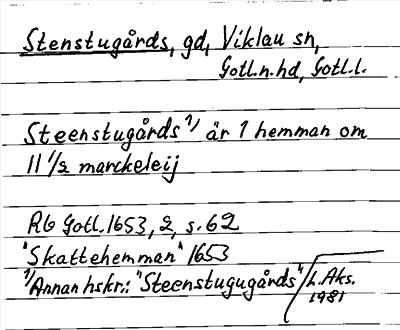 Stenstugårds, gd, Viklau sn,
Gotl.n.hd, Gotl.l.
Steenstugårds 1/ är 1 hemman om
11 1/2 marckeleij
Rb Gotl. 1653, 2, s. 62
"Skattehemman" 1653
1/ Annan hskr.: "Steenstugugårds"
L. Aks.
1981